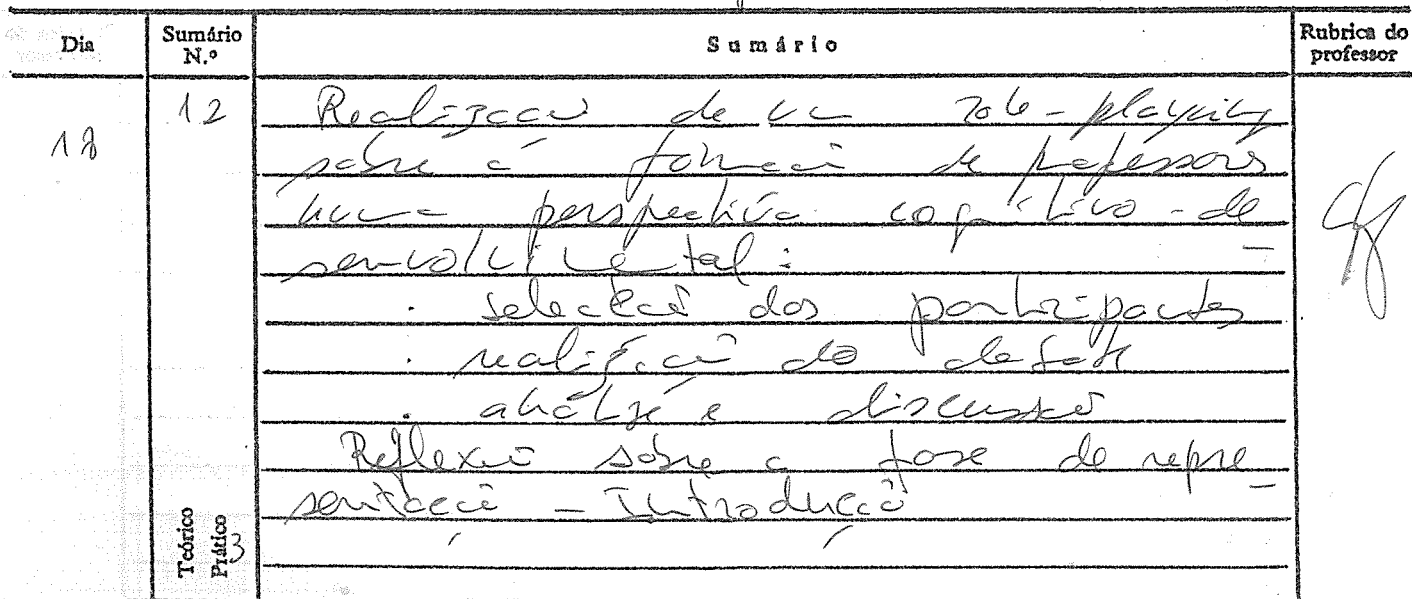 Dia Sumário N.º Sumário Rubrica do professor
18 12 Realização de um role-playing
sobre a formação de professores
numa perspectiva cognitivo-de
senvolvimental:
. selecção dos participantes
. realização do debate
. análise e discussão
Reflexão sobre a fase de repre
sentação - Introdução
Teórico Prático 3